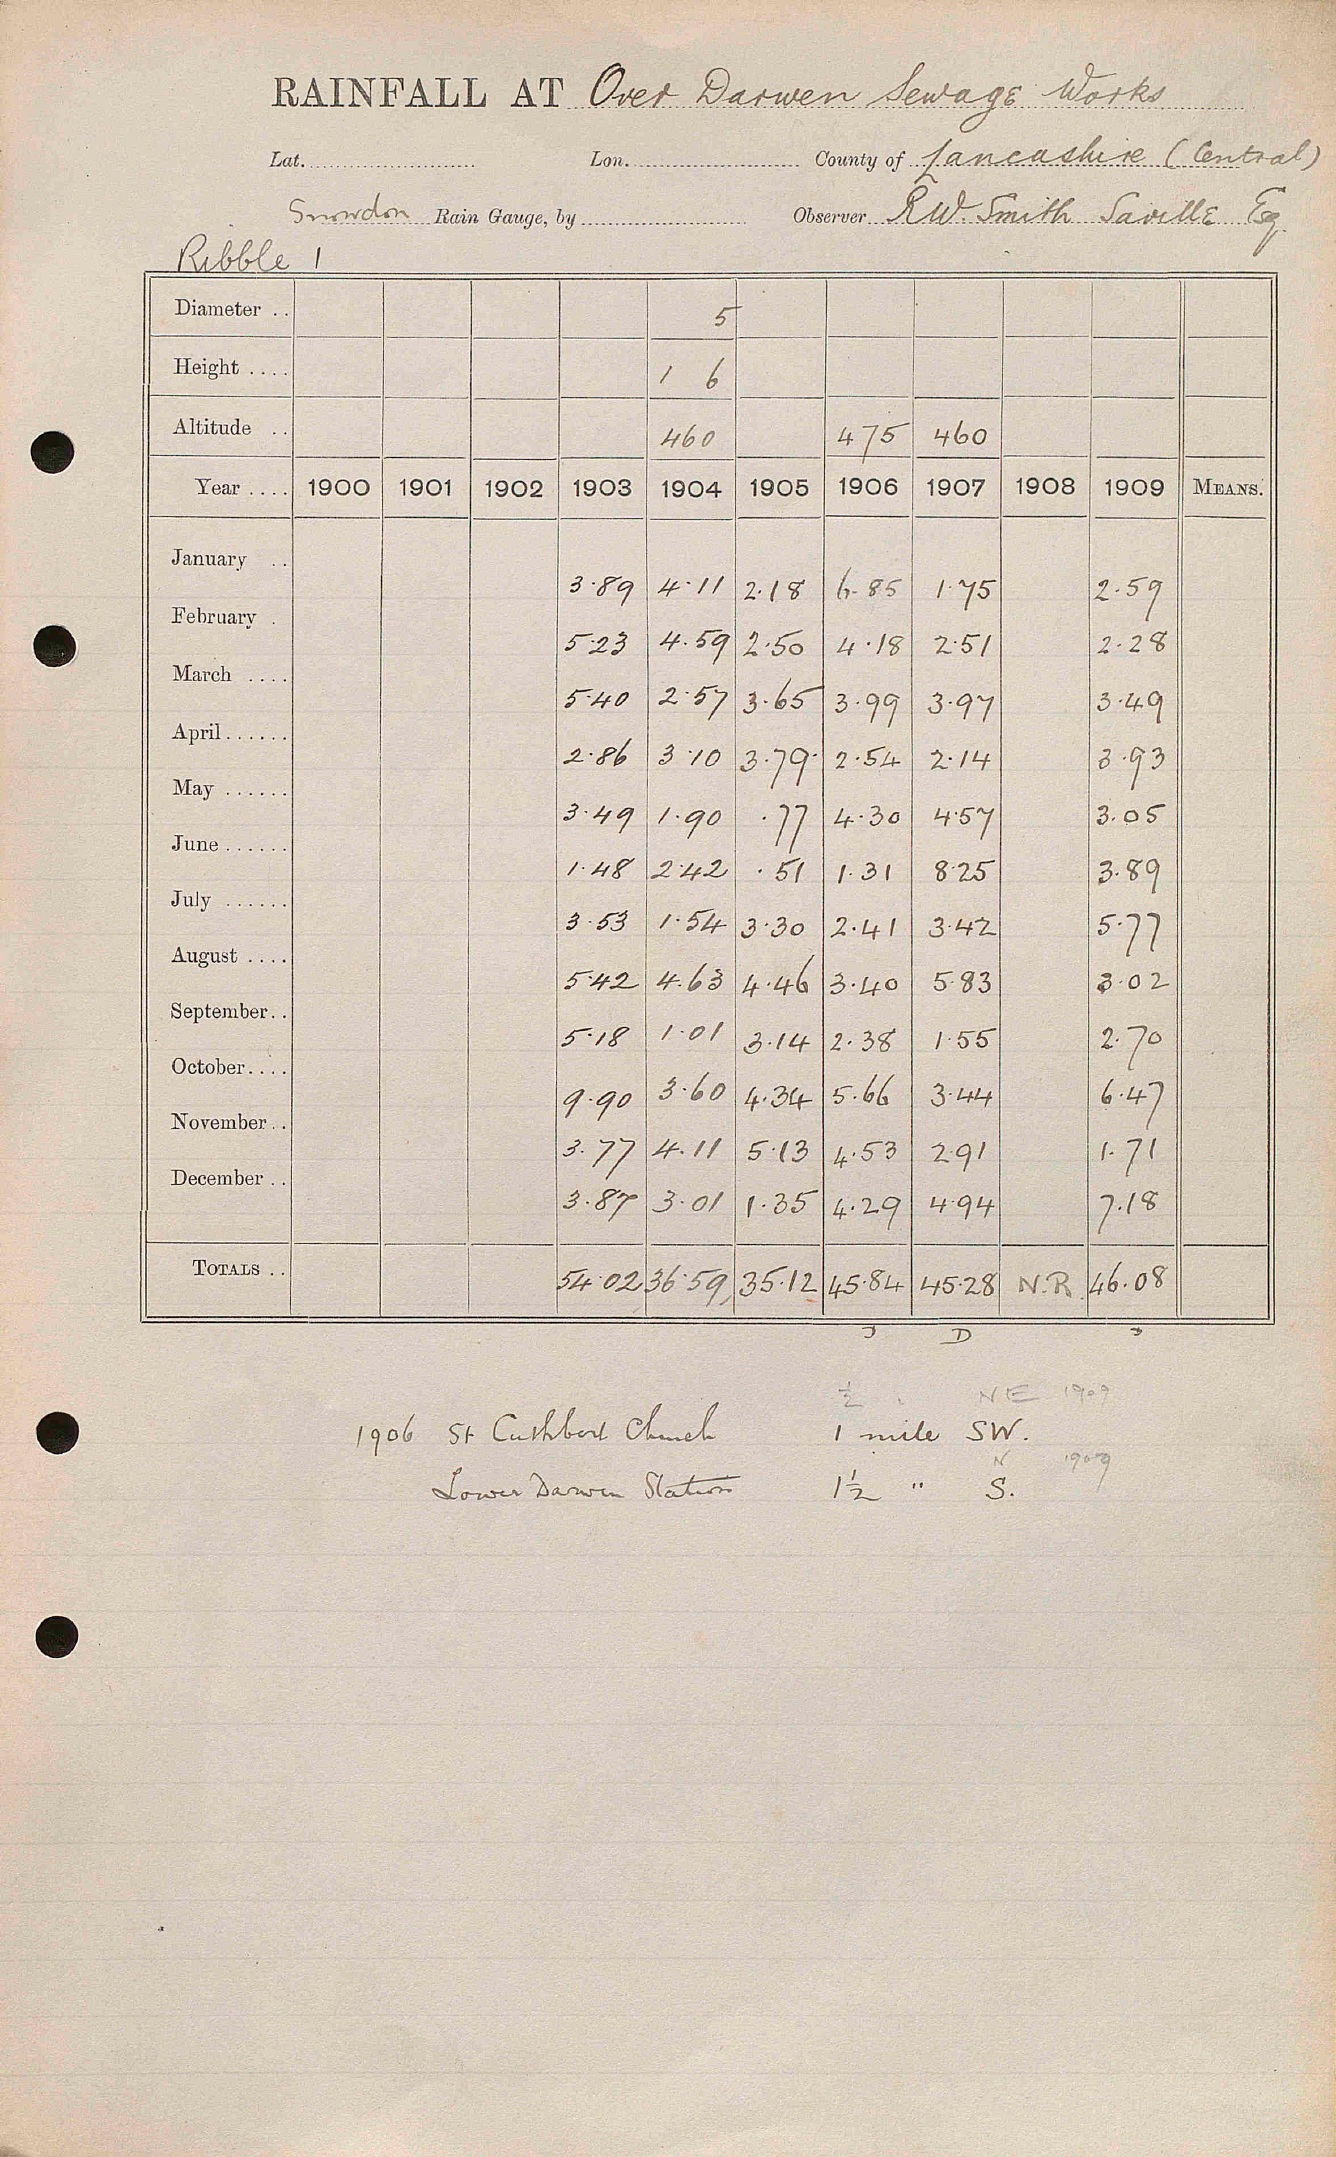 RAINFALL AT Over Darwen Sewage Works
Lat. Lon. County of Lancashire (Central)
Snowdon Rain Gauge, by Observer R W Smith Saville Esq
Ribble 1
Diameter .. 5
Height .... 1 6
Altitude .. 460 475 460
Year .... 1900 1901 1902 1903 1904 1905 1906 1907 1908 1909 MEANS.
January .. 3.89 4.11 2.18 6.85 1.75 2.59
February . 5.23 4.59 2.50 4.18 2.51 2.28
March .... 5.40 2.57 3.65 3.99 3.97 3.49
April...... 2.86 3.10 3.79 2.54 2.14 3.93
May ...... 3.49 1.90 .77 4.30 4.57 3.05
June ...... 1.48 2.42 .51 1.31 8.25 3.89
July ...... 3.53 1.54 3.30 2.41 3.42 5.77
August .... 5.42 4.63 4.46 3.40 5.83 3.02
September.. 5.18 1.01 3.14 2.38 1.55 2.70
October.... 9.90 3.60 4.34 5.66 3.44 6.47
November.. 3.77 4.11 5.13 4.53 2.91 1.71
December .. 3.87 3.01 1.35 4.29 4.94 7.18
TOTALS .. 54.02 36.59 35.12 45.84 45.28 N.R. 46.08
D
½ NE 1909
1906 St Cuthbert Church 1 mile SW.
N 1909
Lower Darwen Station 1½ " S.